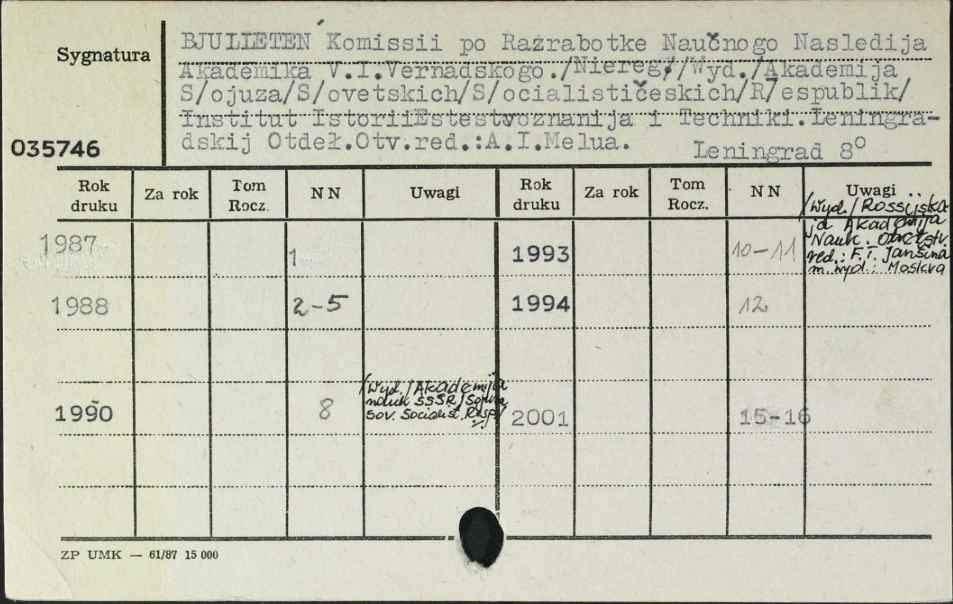 Sygnatura
035746
BJULLETEŃ Komissii po Razrabotke Naučnogo Nasledija
Akademika V.I.Vernadskogo./Niereg//Wyd./Akademija
S/ojuza/S/ovetskich/S/ocialističeskich/R/espublik/
Institut IstoriiEstestvoznanija i Techniki.Leningra-
dskij Otdeł.Otv.red.:A.I.Melua.
Leningrad 8°
Rok druku Za rok Tom Rocz. N N Uwagi Rok druku Za rok Tom Rocz. N N Uwagi
1987 1 1993 10-11
/Wyd./Rossijska-
ja Akademija
Nauk. Otvetstv.
red.: F.T. Janšina
m. wyd.: Moskva
1988 2-5 1994 12
1990 8
/Wyd./Akademija
nauk SSSR/Sojuza
Sov. Socialist. Resp/
2001 15-16
ZP UMK — 61/87 15 000